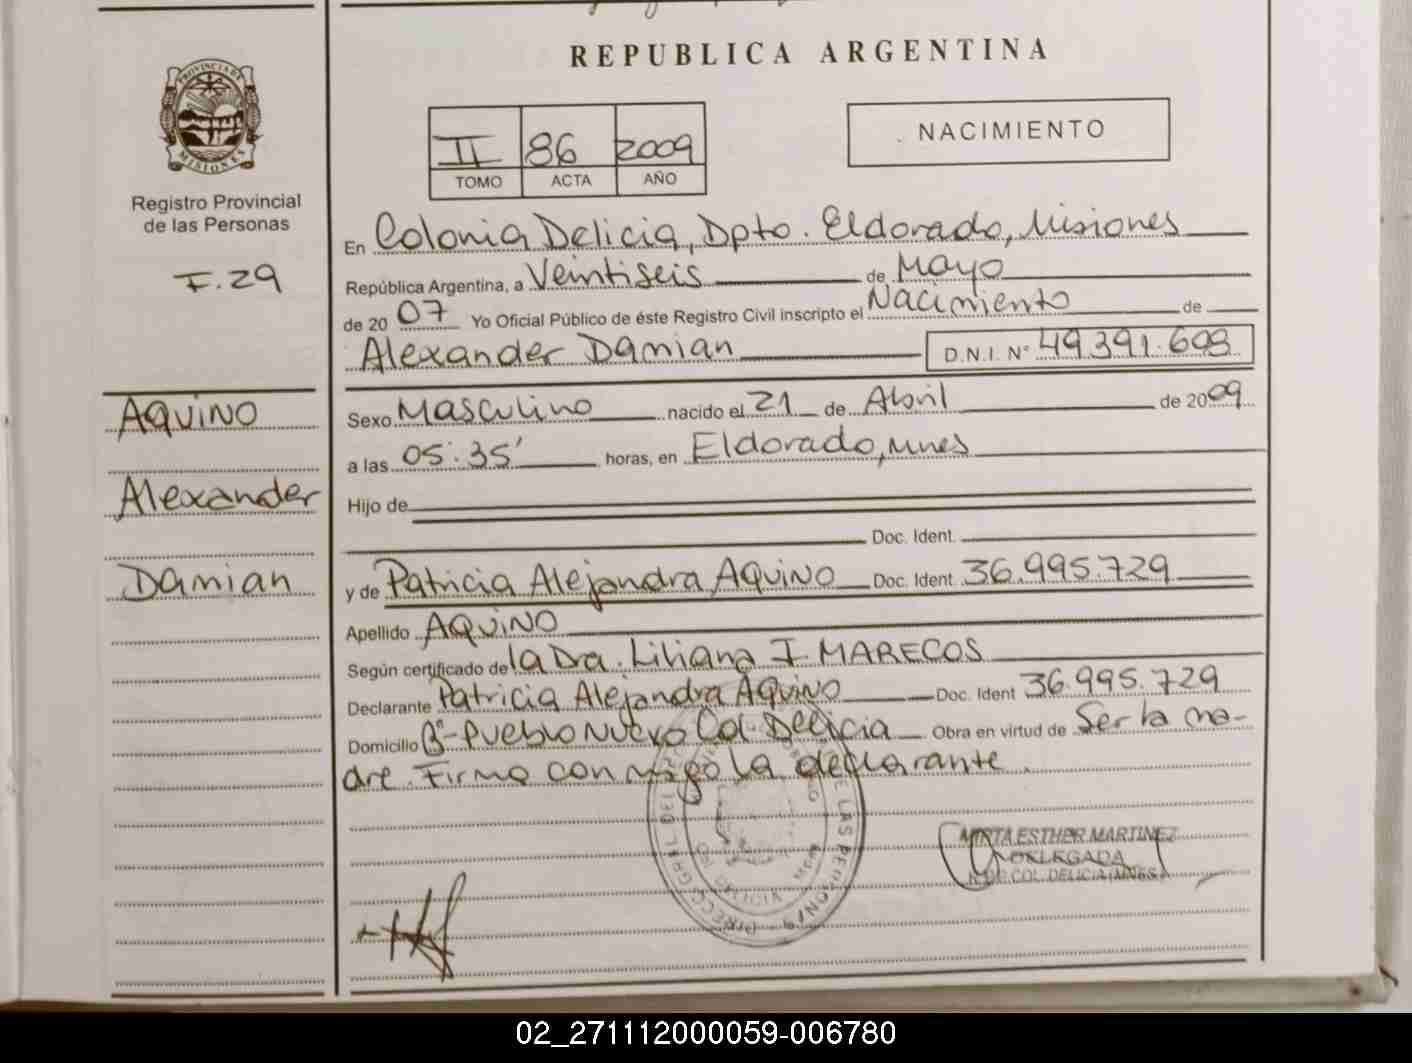 REPUBLICA ARGENTINA
PROVINCIA DE
MISIONES
Registro Provincial
de las Personas
F.29
II 86 2009
TOMO ACTA AÑO
NACIMIENTO
En Colonia Delicia, Dpto. Eldorado, Misiones
República Argentina, a Veintiseis de Mayo
de 20 07 Yo Oficial Público de éste Registro Civil inscripto el Nacimiento de
Alexander Damian D.N.I. Nº 49.391.603
AQUINO
Alexander
Damian
Sexo Masculino nacido el 21 de Abril de 2009
a las 05:35' horas, en Eldorado, Mnes
Hijo de
Doc. Ident.
y de Patricia Alejandra AQUINO Doc. Ident. 36.995.729
Apellido AQUINO
Según certificado de la Dra. Liliana I MARECOS
Declarante Patricia Alejandra Aquino Doc. Ident 36.995.729
Domicilio Bº- Pueblo Nuevo Col. Delicia Obra en virtud de Ser la ma-
dre. Firma conmigo la declarante.
MIRTA ESTHER MARTINEZ
DELEGADA
COL. DELICIA (MNES)
02_271112000059-006780